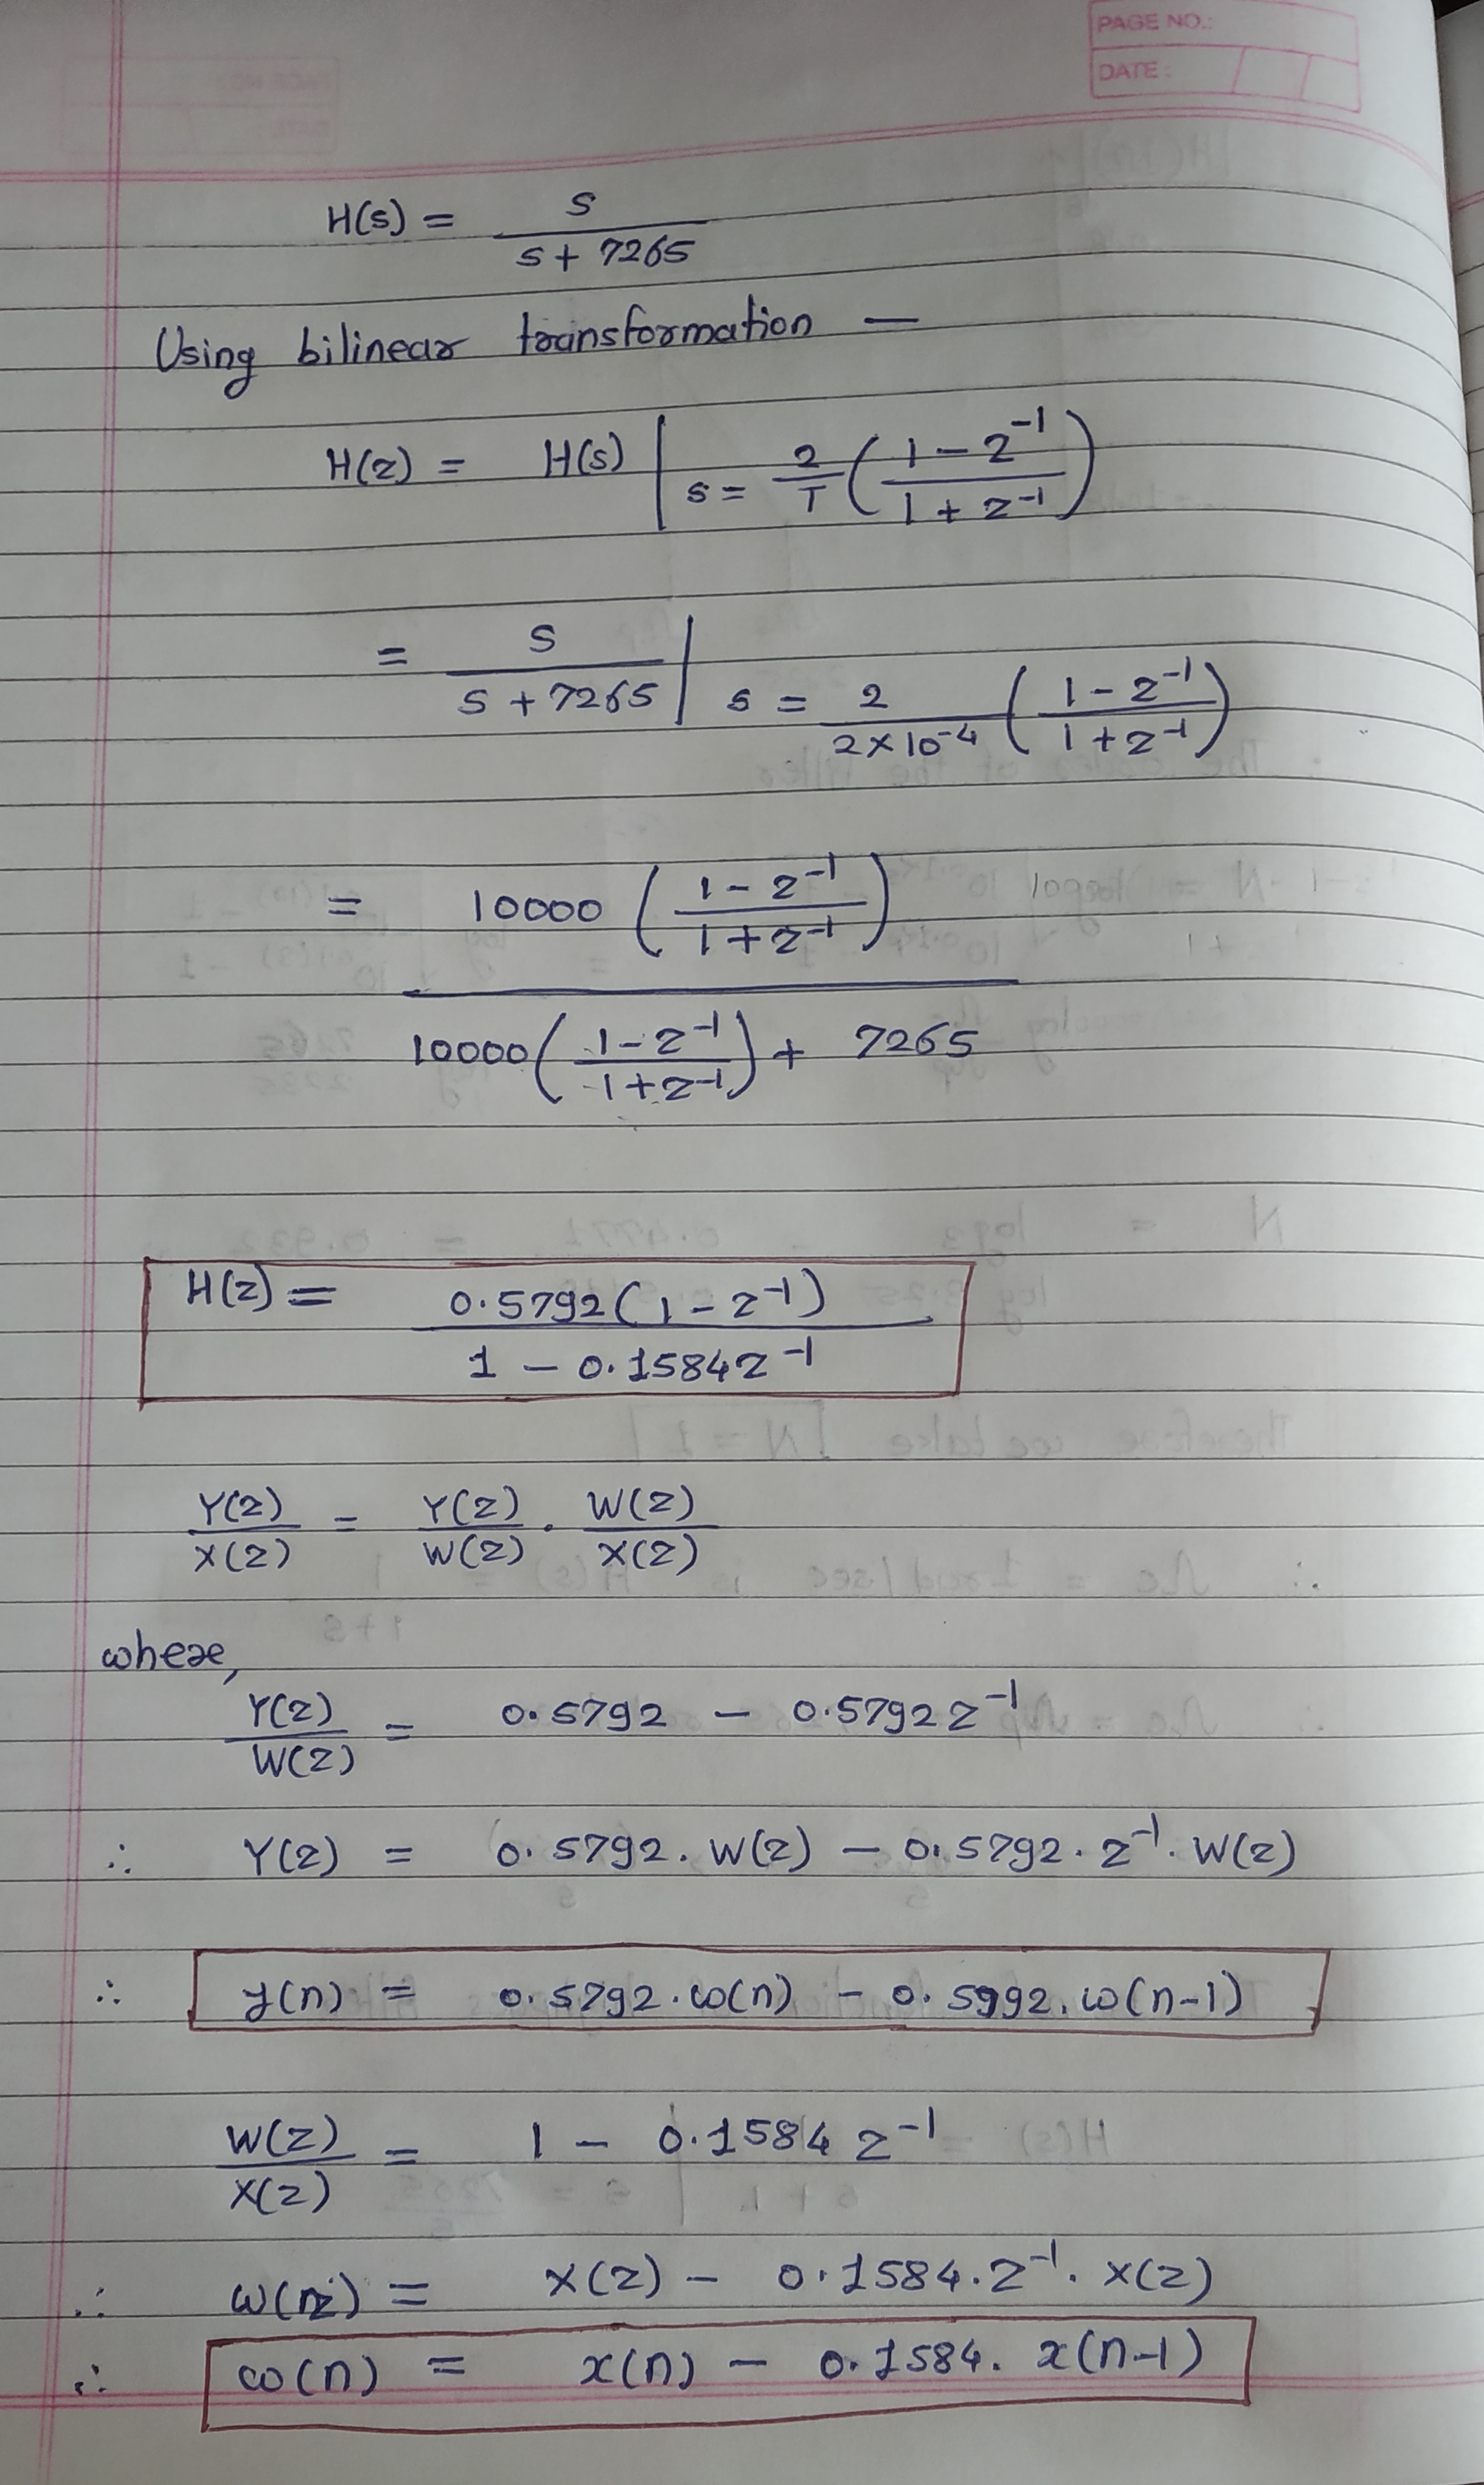 PAGE NO.:
DATE:
H(s) = s / (s + 7265)
Using bilinear transformation —
H(z) = H(s) | s = 2/T ((1 - z⁻¹) / (1 + z⁻¹))
= s / (s + 7265) | s = 2 / (2×10⁻⁴) ((1 - z⁻¹) / (1 + z⁻¹))
= 10000 ((1 - z⁻¹) / (1 + z⁻¹))
10000 ((1 - z⁻¹) / (1 + z⁻¹)) + 7265
H(z) = 0.5792(1 - z⁻¹)
1 - 0.1584z⁻¹
Y(z) / X(z) = Y(z) / W(z) . W(z) / X(z)
where,
Y(z) / W(z) = 0.5792 - 0.5792z⁻¹
∴ Y(z) = 0.5792. W(z) - 0.5792. z⁻¹. W(z)
∴ y(n) = 0.5792.w(n) - 0.5992.w(n-1)
W(z) / X(z) = 1 - 0.1584 z⁻¹
∴ W(z) = X(z) - 0.1584.z⁻¹. X(z)
∴ w(n) = x(n) - 0.1584. x(n-1)